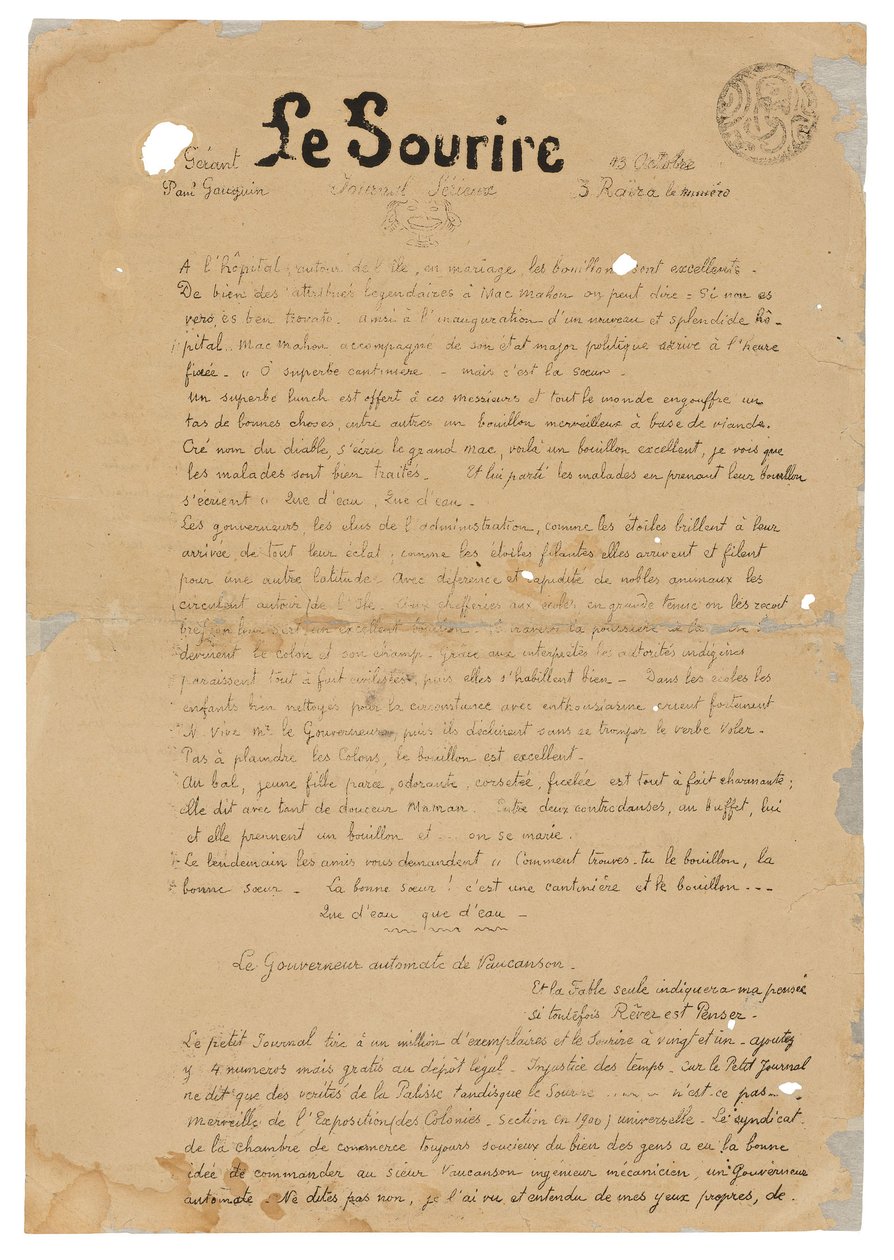 Le Sourire
Gérant
13 Octobre
Paul Gauguin
Journal Sérieux
3 Raïra le numéro
A l'hôpital, autour de l'île, en mariage, les bouillons sont excellents -
De bien des attribués légendaires à Mac mahon on peut dire = Si non es
vero, es ben trovato. ainsi à l'inauguration d'un nouveau et splendide hô-
pital.. Mac Mahon accompagné de son état major politique arrive à l'heure
fixée - " O superbe cantinière - mais c'est la sœur -
un superbe lunch est offert à ces messieurs et tout le monde engouffre un
tas de bonnes choses, entre autres un bouillon merveilleux à base de viande.
Cré nom du diable, s'écrie le grand Mac, voilà un bouillon excellent, je vois que
les malades sont bien traités - Et lui parti les malades en prenant leur bouillon
s'écrient " Que d'eau, Que d'eau -
Les gouverneurs, les élus de l'administration, comme les étoiles brillent à leur
arrivée de tout leur éclat; comme les étoiles filantes elles arrivent et filent
pour une autre latitude. Avec déférence et rapidité de nobles animaux les
circulent autour de l'île. chefferies aux écoles, en grande tenue on les reçoit
bref on leur sert un excellent bouillon - travers la poussière de la
devinent le colon et son champ - Grâce aux interprètes les autorités indigènes
paraissent tout à fait civilisées, puis elles s'habillent bien - Dans les écoles les
enfants bien nettoyés pour la circonstance avec enthousiasme crient fortement
Vive Mr le Gouverneur, puis ils déclinent sans se tromper le verbe Voler -
Pas à plaindre les Colons, le bouillon est excellent -
Au bal, jeune fille parée, odorante, corsetée, ficelée est tout à fait charmante;
elle dit avec tant de douceur Maman. Entre deux contredanses, au buffet, lui
et elle prennent un bouillon et ... on se marie.
Le lendemain les amis vous demandent " Comment trouves-tu le bouillon, la
bonne sœur - La bonne sœur ! c'est une cantinière et le bouillon ---
Que d'eau que d'eau -
Le Gouverneur automate de Vaucanson -
Et la Fable seule indiquera ma pensée
si toutefois Rêver est Penser -
Le petit Journal tire à un million d'exemplaires et le Sourire à vingt et un - ajoutez
y 4 numéros mais gratis au dépôt légal - Injustice des temps - Car le Petit Journal
ne dit que des vérités de la Palisse tandisque le Sourire ...... n'est-ce pas -
Merveille de l'Exposition (des Colonies - Section en 1900) universelle - Le syndicat
de la chambre de commerce toujours soucieux du bien des gens a eu la bonne
idée de commander au Sieur Vaucanson ingénieur mécanicien, un Gouverneur
automate - Ne dites pas non, je l'ai vu et entendu de mes yeux propres, de -